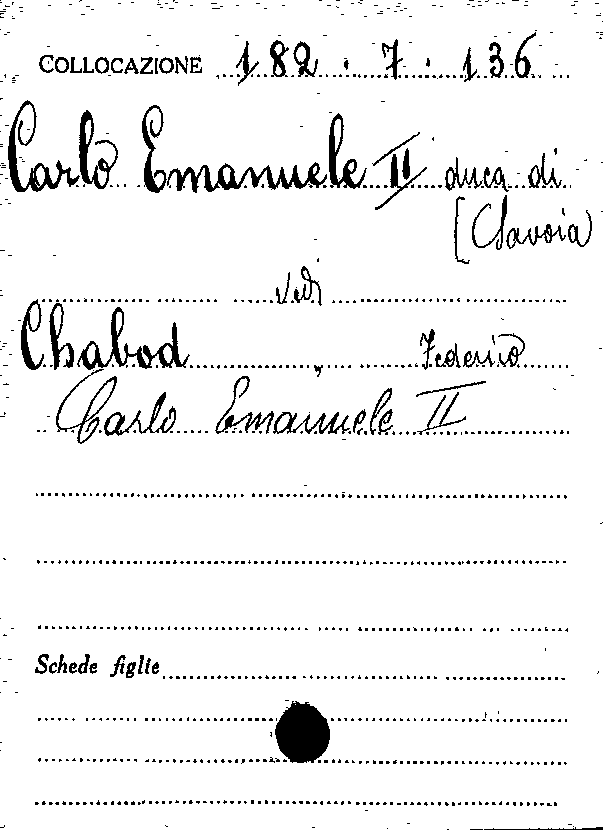 COLLOCAZIONE 182 . 7 . 136
Carlo Emanuele II duca di
[Savoia
vedi
Chabod, Federico
Carlo Emanuele II
Schede figlie